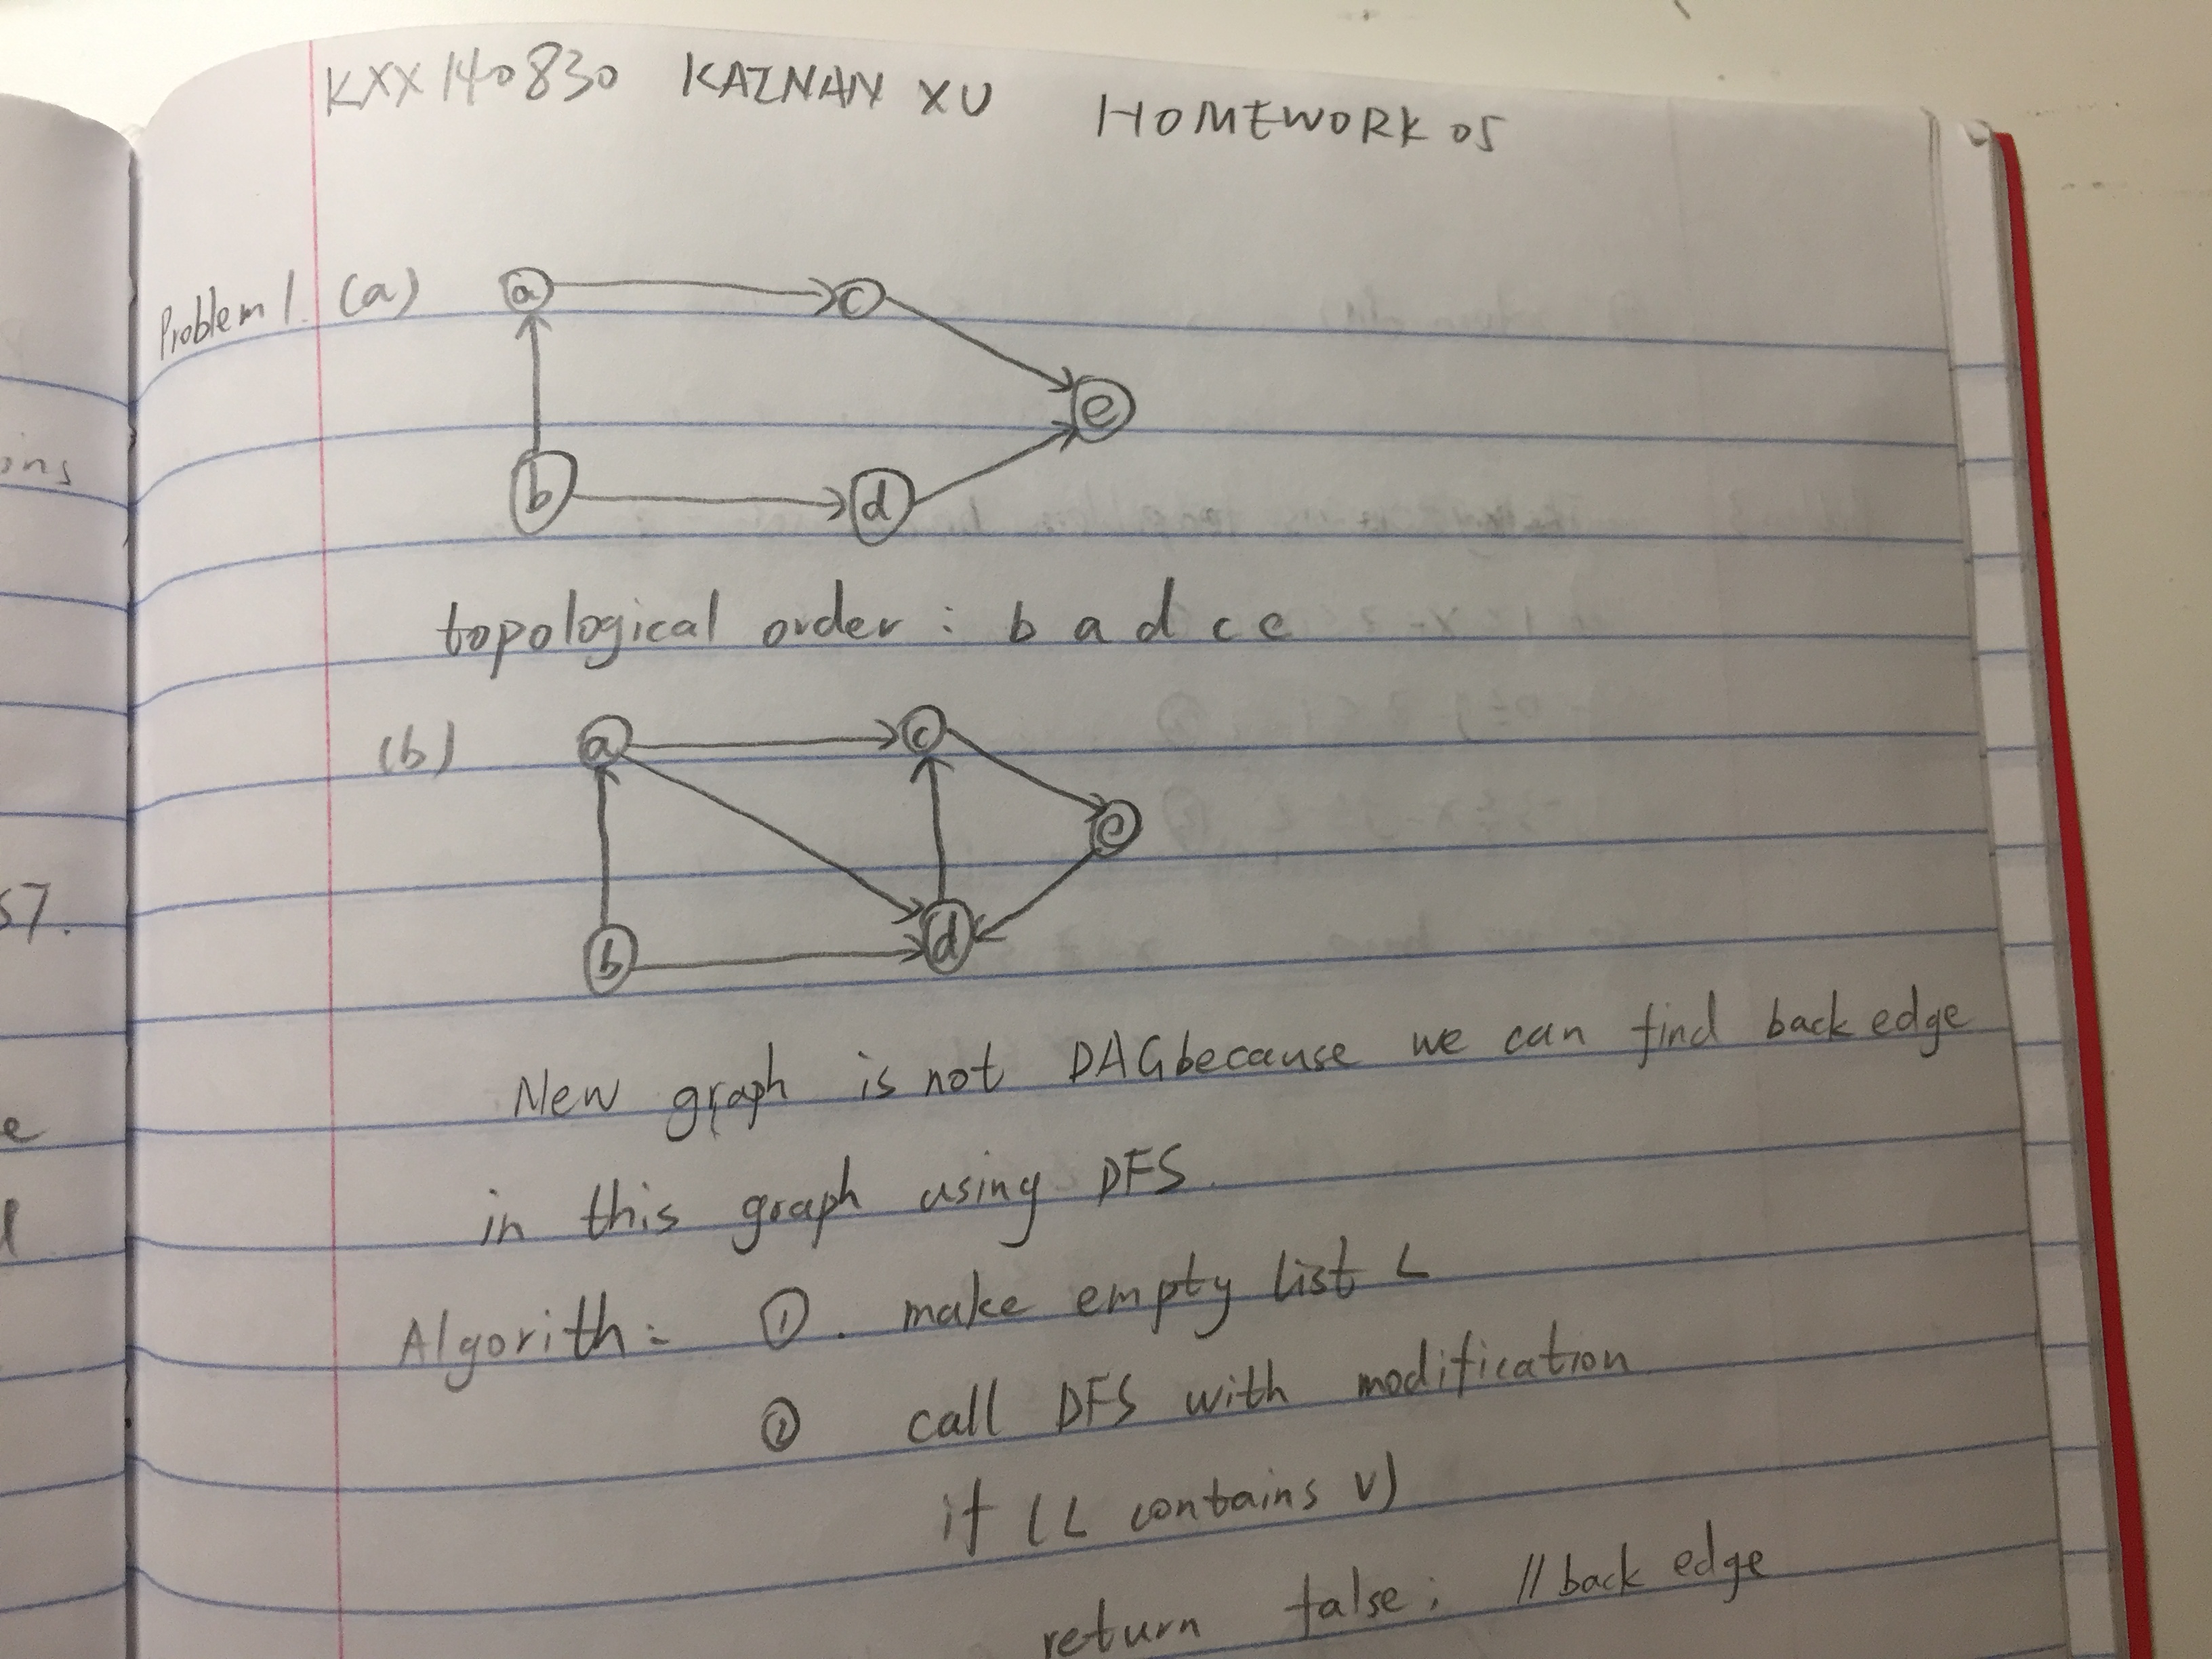 KXX140830 KAINAN XU HOMEWORK 05
Problem 1. (a)
a c
e
b d
topological order : b a d c e
(b) a c
e
b d
New graph is not DAG because we can find back edge
in this graph using DFS.
Algorith: ①. make empty list L
② call DFS with modification
if (L contains v)
return false; // back edge
ons
s7.
e